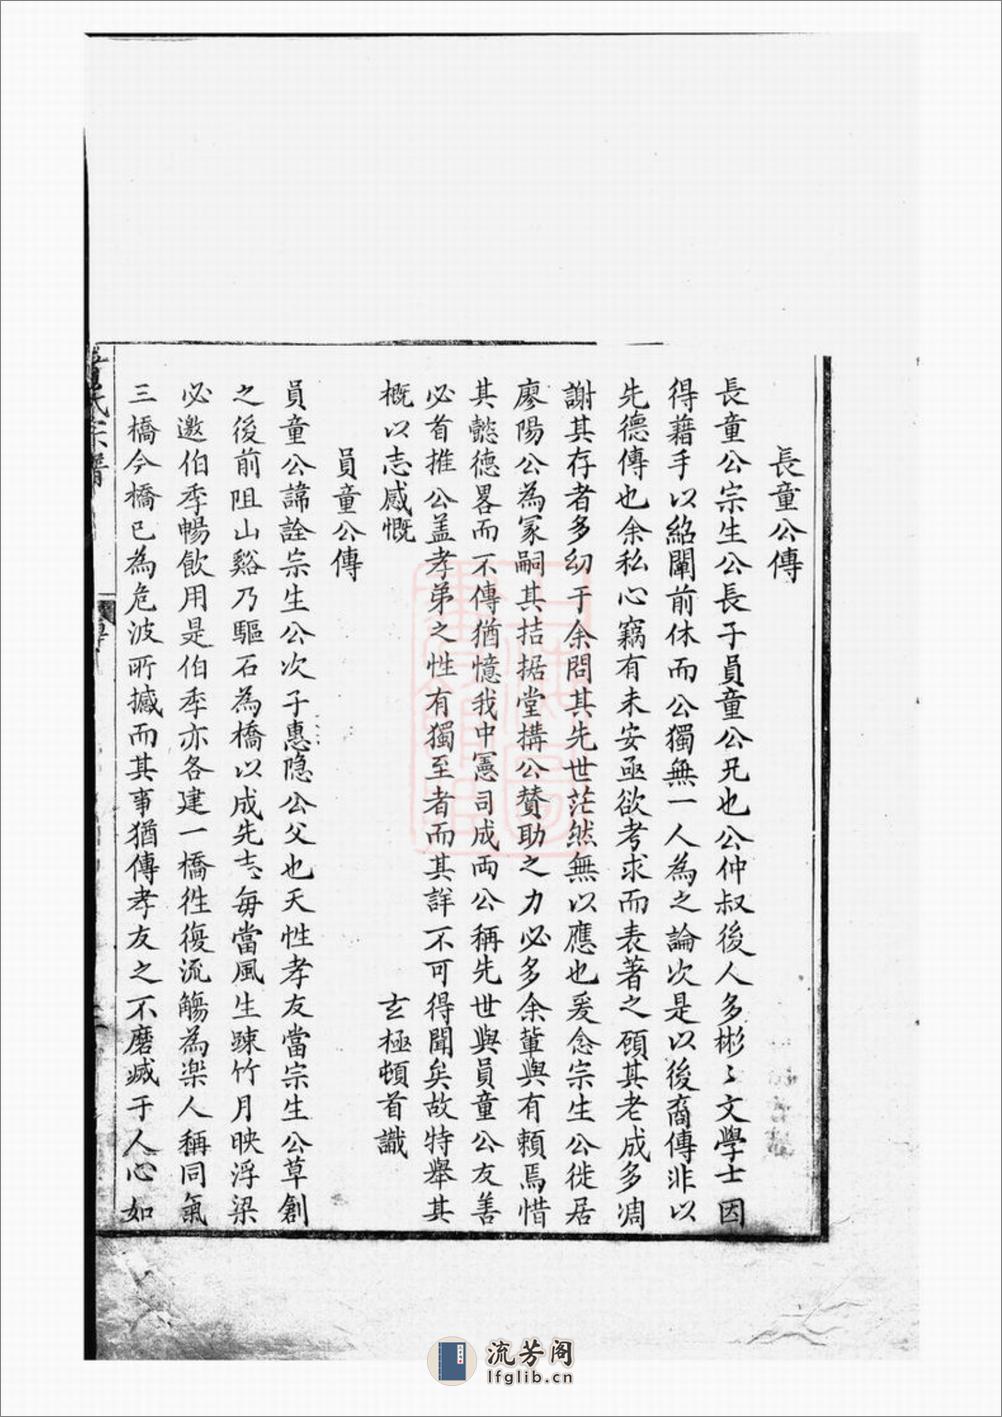 長童公傳
長童公宗生公長子員童公兄也公仲叔後人多彬〻文學士因
得藉手以紹闡前休而公獨無一人為之論次是以後裔傳非以
先德傳也余私心竊有未安亟欲考求而表著之顧其老成多凋
謝其存者多幼于余問其先世茫然無以應也爰念宗生公徙居
廖陽公為冢嗣其拮据堂搆公贊助之力必多余輩與有賴焉惜
其懿德畧而不傳猶憶我中憲司成两公稱先世與員童公友善
必首推公盖孝弟之性有獨至者而其詳不可得聞矣故特舉其
概以志感慨 玄極頓首識
員童公傳
員童公諱詮宗生公次子惠隐公父也天性孝友當宗生公草創
之後前阻山谿乃驅石為橋以成先志每當風生疎竹月映浮梁
必邀伯季暢飲用是伯季亦各建一橋徃復流觴為楽人稱同氣
三橋今橋已為危波所撼而其事猶傳孝友之不磨滅于人心如
氏宗譜
傳
流芳阁
lfglib.cn